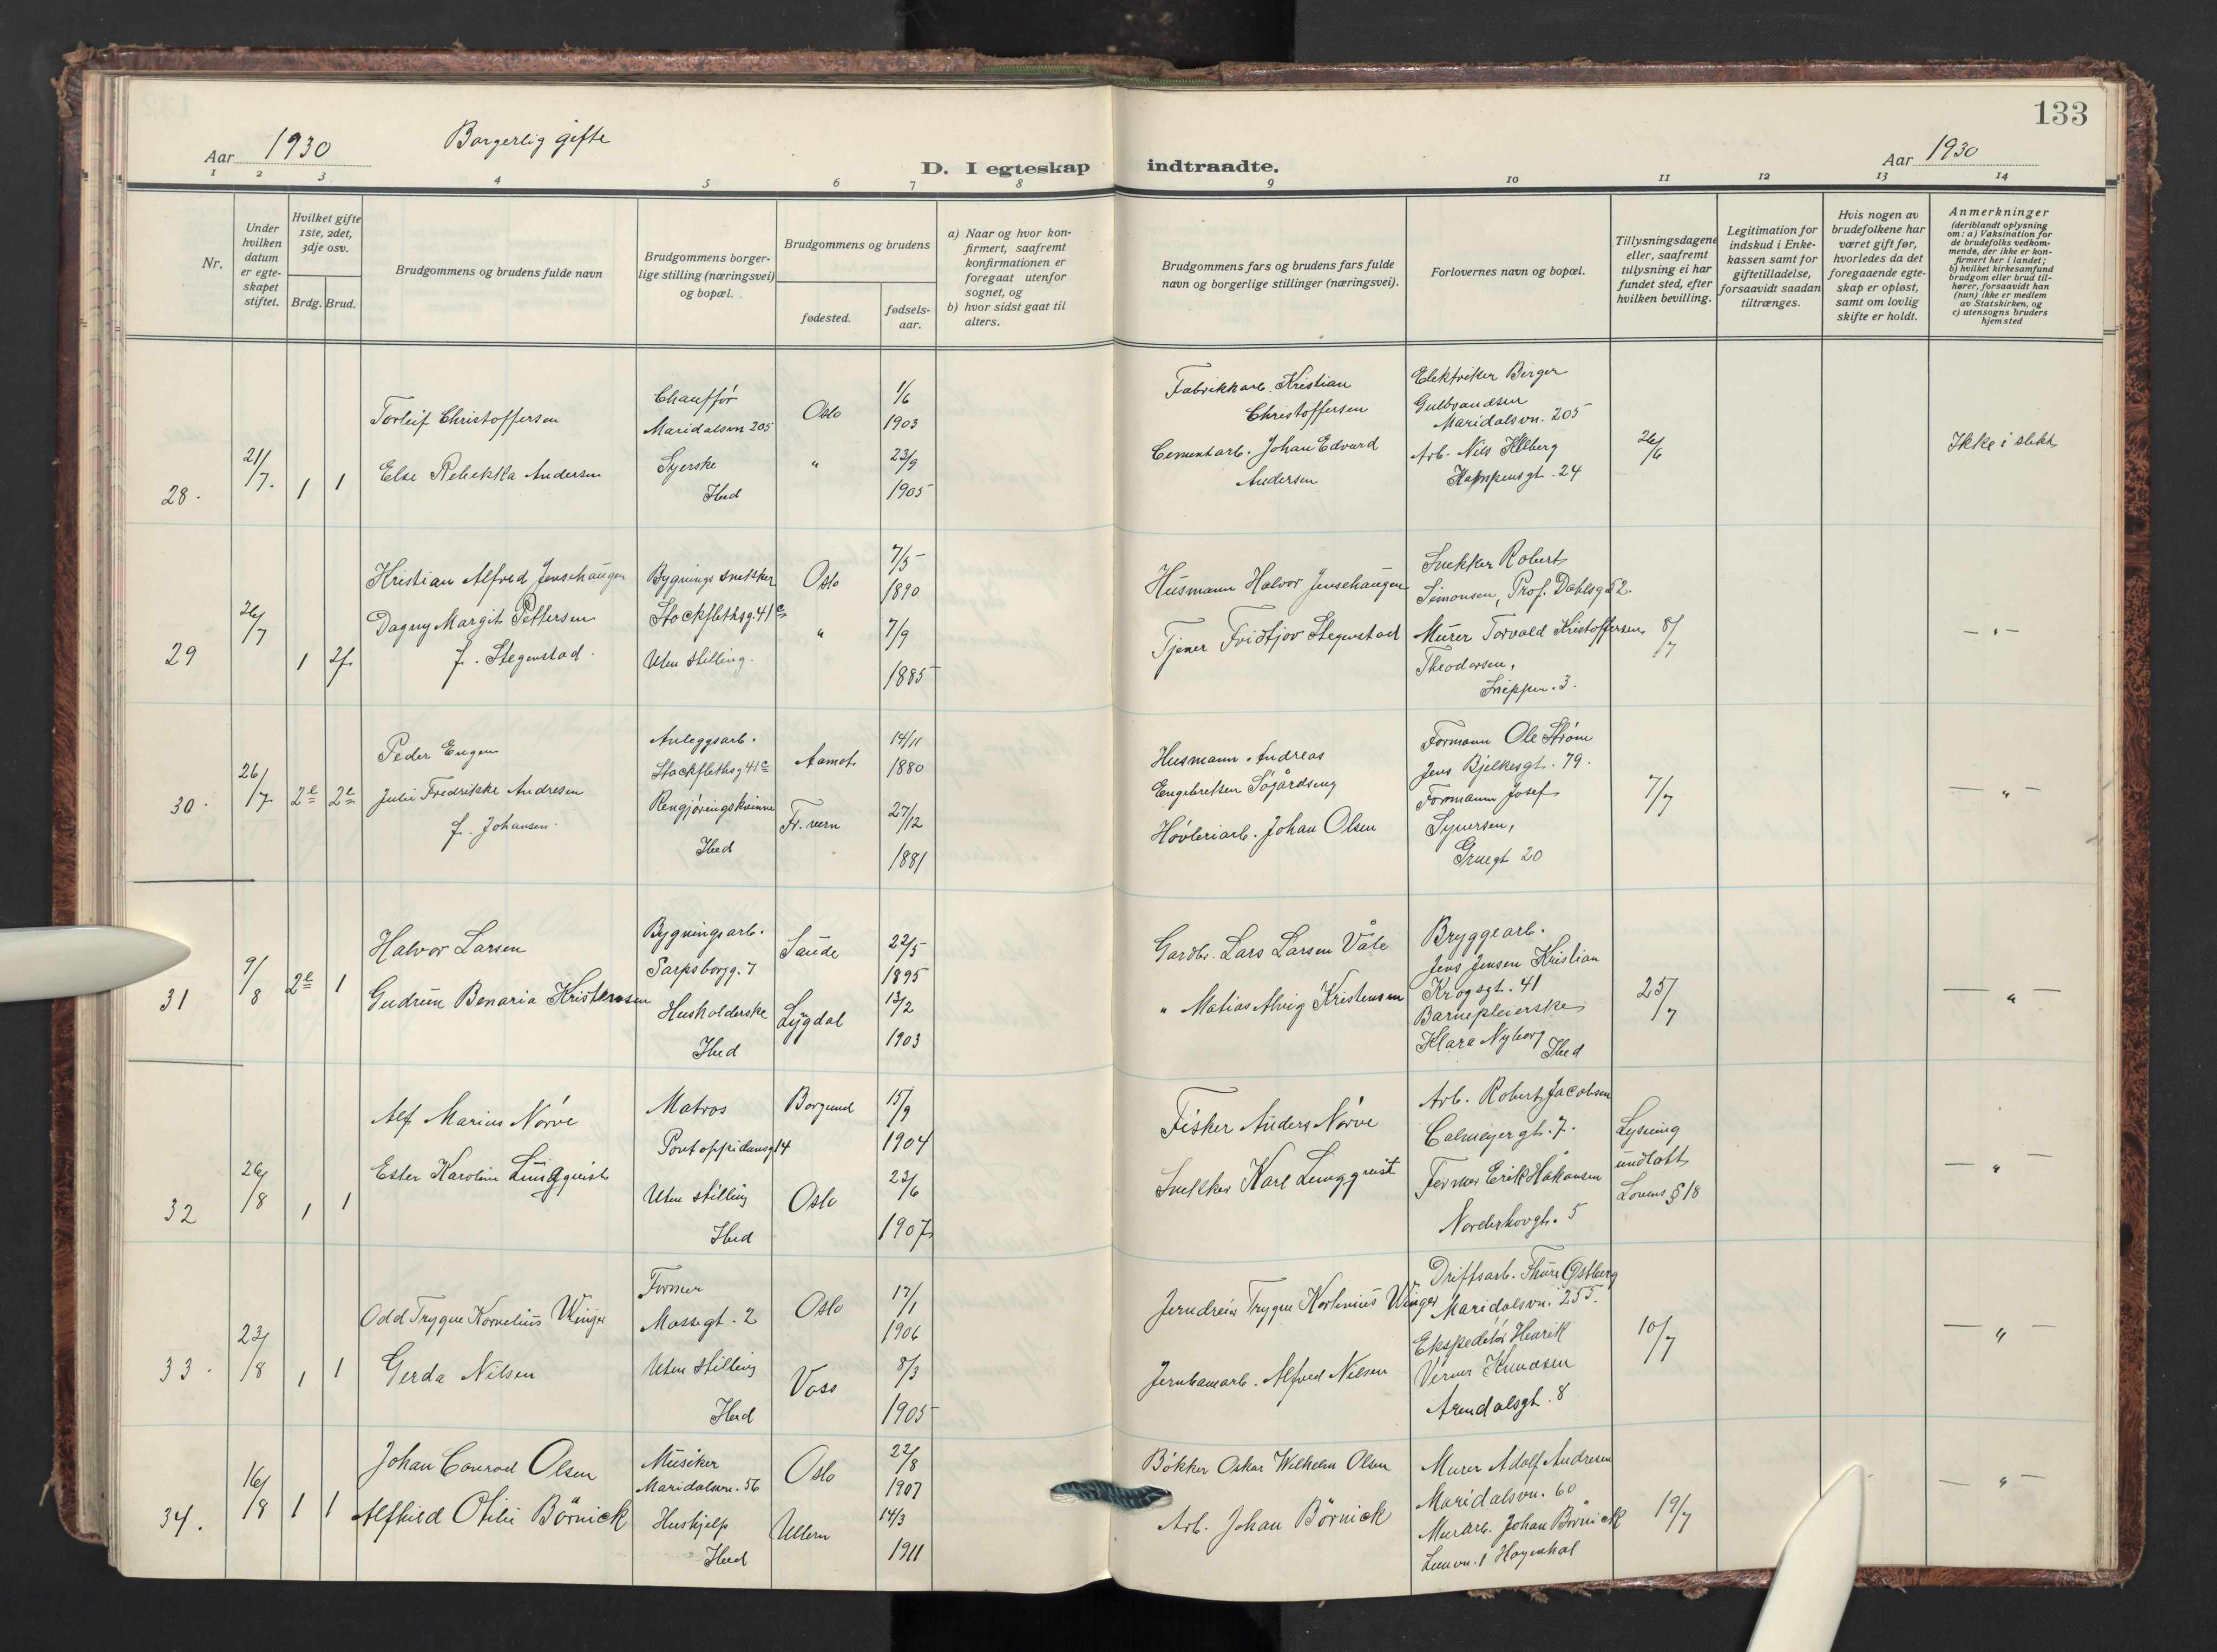 133
Aar 1930
Borgerlig gifte
D. I egteskap
indtraadte.
Aar 1930
1 2 3 4 5 6 7 8 9 10 11 12 13 14
Nr.
Under
hvilken
datum
er egte-
skapet
stiftet.
Hvilket gifte
1ste, 2det,
3dje osv.
Brdg. Brud.
Brudgommens og brudens fulde navn
Brudgommens borger-
lige stilling (næringsvei)
og bopæl.
Brudgommens og brudens
fødested.
fødsels-
aar.
a) Naar og hvor kon-
firmert, saafremt
konfirmationen er
foregaat utenfor
sognet, og
b) hvor sidst gaat til
alters.
Brudgommens fars og brudens fars fulde
navn og borgerlige stillinger (næringsvei).
Forlovernes navn og bopæl.
Tillysningsdagene
eller, saafremt
tillysning ei har
fundet sted, efter
hvilken bevilling.
Legitimation for
indskud i Enke-
kassen samt for
giftetilladelse,
forsaavidt saadan
tiltrænges.
Hvis nogen av
brudefolkene har
været gift før,
hvorledes da det
foregaaende egte-
skap er opløst,
samt om lovlig
skifte er holdt.
Anmerkninger
(deriblandt oplysning
om: a) Vaksination for
de brudefolks vedkom-
mende, der ikke er kon-
firmert her i landet;
b) hvilket kirkesamfund
brudgom eller brud til-
hører, forsaavidt han
(hun) ikke er medlem
av Statskirken, og
c) utensogns bruders
hjemsted
28.
21/7.
1 1
Torleif Christoffersen
Else Rebekka Andersen
Chauffør
Maridalsvn 205
Syerske
Ibid
Oslo
"
1/6
1903
23/9
1905
Fabrikkarb. Kristian
Christoffersen
Cementarb. Johan Edvard
Andersen
Elektriker Birger
Gulbrandsen
Maridalsvn. 205
Arb. Nils
Kampensgt. 24
26/6
Ikke i slekt
29
26/7
1 2f
Kristian Alfred Jensehaugen
Dagny Margit Pettersen
f. Stegenstad.
Bygnings snekker
Stockflethsg. 41c
Uten stilling.
Oslo
"
7/5
1890
7/9
1885
Husmann Halvor Jensehaugen
Tjener Fridtjov Stegenstad
Snekker Robert
Simonsen, Prof. Dahlsg 52.
Murer Torvald Kristoffersen
Theodorsen,
3.
8/7
— " —
30.
26/7
2e 2e
Peder Engen
Julie Fredrikke Andresen
f. Johansen.
Anleggsarb.
Stockflethsg 41c
Rengjøringskvinne
Ibid
Aamot
Fr. vern
14/11
1880
27/12
1881
Husmann Andreas
Engebretsen Søgårdseng
Høvleriarb. Johan Olsen
Formann Ole Strøm
Jens Bjelkesgt. 79.
Formann Josef
Syversen,
Gruegt 20
7/7
— " —
31
9/8
2e 1
Halvor Larsen
Gudrun Benaria Kristensen
Bygningsarb.
Sarpsborgg. 7
Husholderske
Ibid
Saude
Lyngdal
22/5
1895
13/2
1903
Gardbr. Lars Larsen Våle
" Matias Alvig Kristensen
Bryggearb.
Jens Jensen Kristian
Krogsgt. 41
Barnepleierske
Klara Nyborg
Ibid
25/7
— " —
32
26/8
1 1
Alf Marius Nørve
Ester Karoline Lungquist
Matros
Pontoppidansg 14
Uten stilling
Ibid
Borgund
Oslo
15/9
1904
23/6
1907
Fisker Anders Nørve
Snekker Karl Lungquist
Arb. Robert Jacobsen
Calmeyergt. 7.
Former Erik Håkansen
Norderhovgt. 5
Lysning
undlatt
Lovens § 18
— " —
33.
23/8
1 1
Odd Trygve Kornelius Winger
Gerda Nilsen
Former
Mossegt. 2
Uten stilling
Ibid
Oslo
Voss
17/1
1906
8/3
1905
Jerndreier Trygve Kornelius Winger
Jernbanearb. Alfred Nilsen
Driftsarb. Thure Østberg
Maridalsvn. 255.
Ekspeditør Henrik
Verner Knudsen
Arendalsgt. 8
10/7
— " —
34.
16/8
1 1
Johan Conrad Olsen
Alfhild Otilie Börnick
Musiker
Maridalsvn. 56
Hushjelp
Ibid
Oslo
Ullern
22/8
1907
14/3
1911
Bøkker Oskar Wilhelm Olsen
Arb. Johan Börnick
Murer Adolf Andresen
Maridalsvn. 60
Murarb. Johan Börnick
1
19/7
— " —